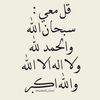 قل معي :
سبحان الله
والحمد لله
ولا اله الا الله
والله اكبر